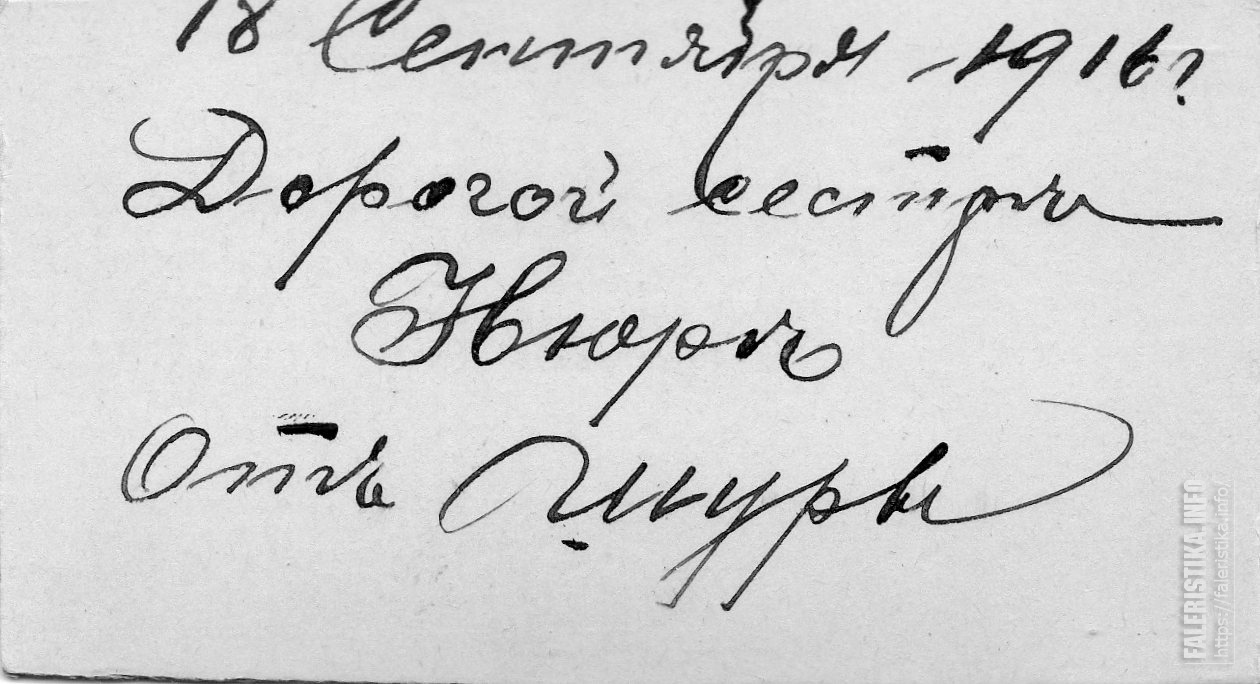 18 Сентября 1916 г
Дорогой сестрѣ
Нюрѣ
Отъ Шуры
FALERISTIKA.INFO
https://faleristika.info